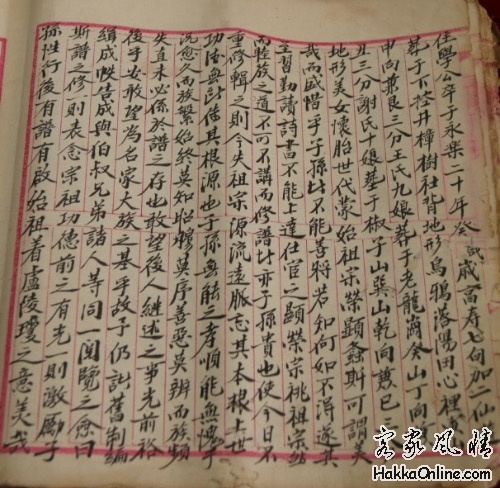 住學公卒于永樂二十年癸戌歲富寿七旬加二仙
葬于下拴井樟樹社背地形烏鴉落陽田心裡
甲向兼艮三分王氏九娘葬于老龍湖癸山丁向
丑三分謝氏八娘墓于椒子山巽山乾向兼巳
地形美女懷胎世代蒙始祖宗榮顯螽斯可謂美
哉而感惜乎子孫皆不能善將若知何如不得遂其
至習勤讀詩書不能上達仕官之顯榮宗祧祖宗然
而睦族之道不可不講而修譜皆亦子孫貴也使今日不
重修輯之則今失祖宗源流遠脈忘其本根上世
功德無以偹其根源也子孫無能之孝順能無愧乎
況愈久而族繁始終莫知昭穆莫序善惡莫辨而族類
失真未必係於譜之存也敢望後人継述之事光前裕
後乎安敢望為名家大族之基乎故予仍訛舊制編
緝成帙告成與伯叔兄弟諸人等同一閱覽之余曰
斯譜之修一則表念宗祖功德前之有光一則激勵子
孫性行後有譜有啟始祖着盧陵瓊之意美哉
客家風情
HakkaOnline.com